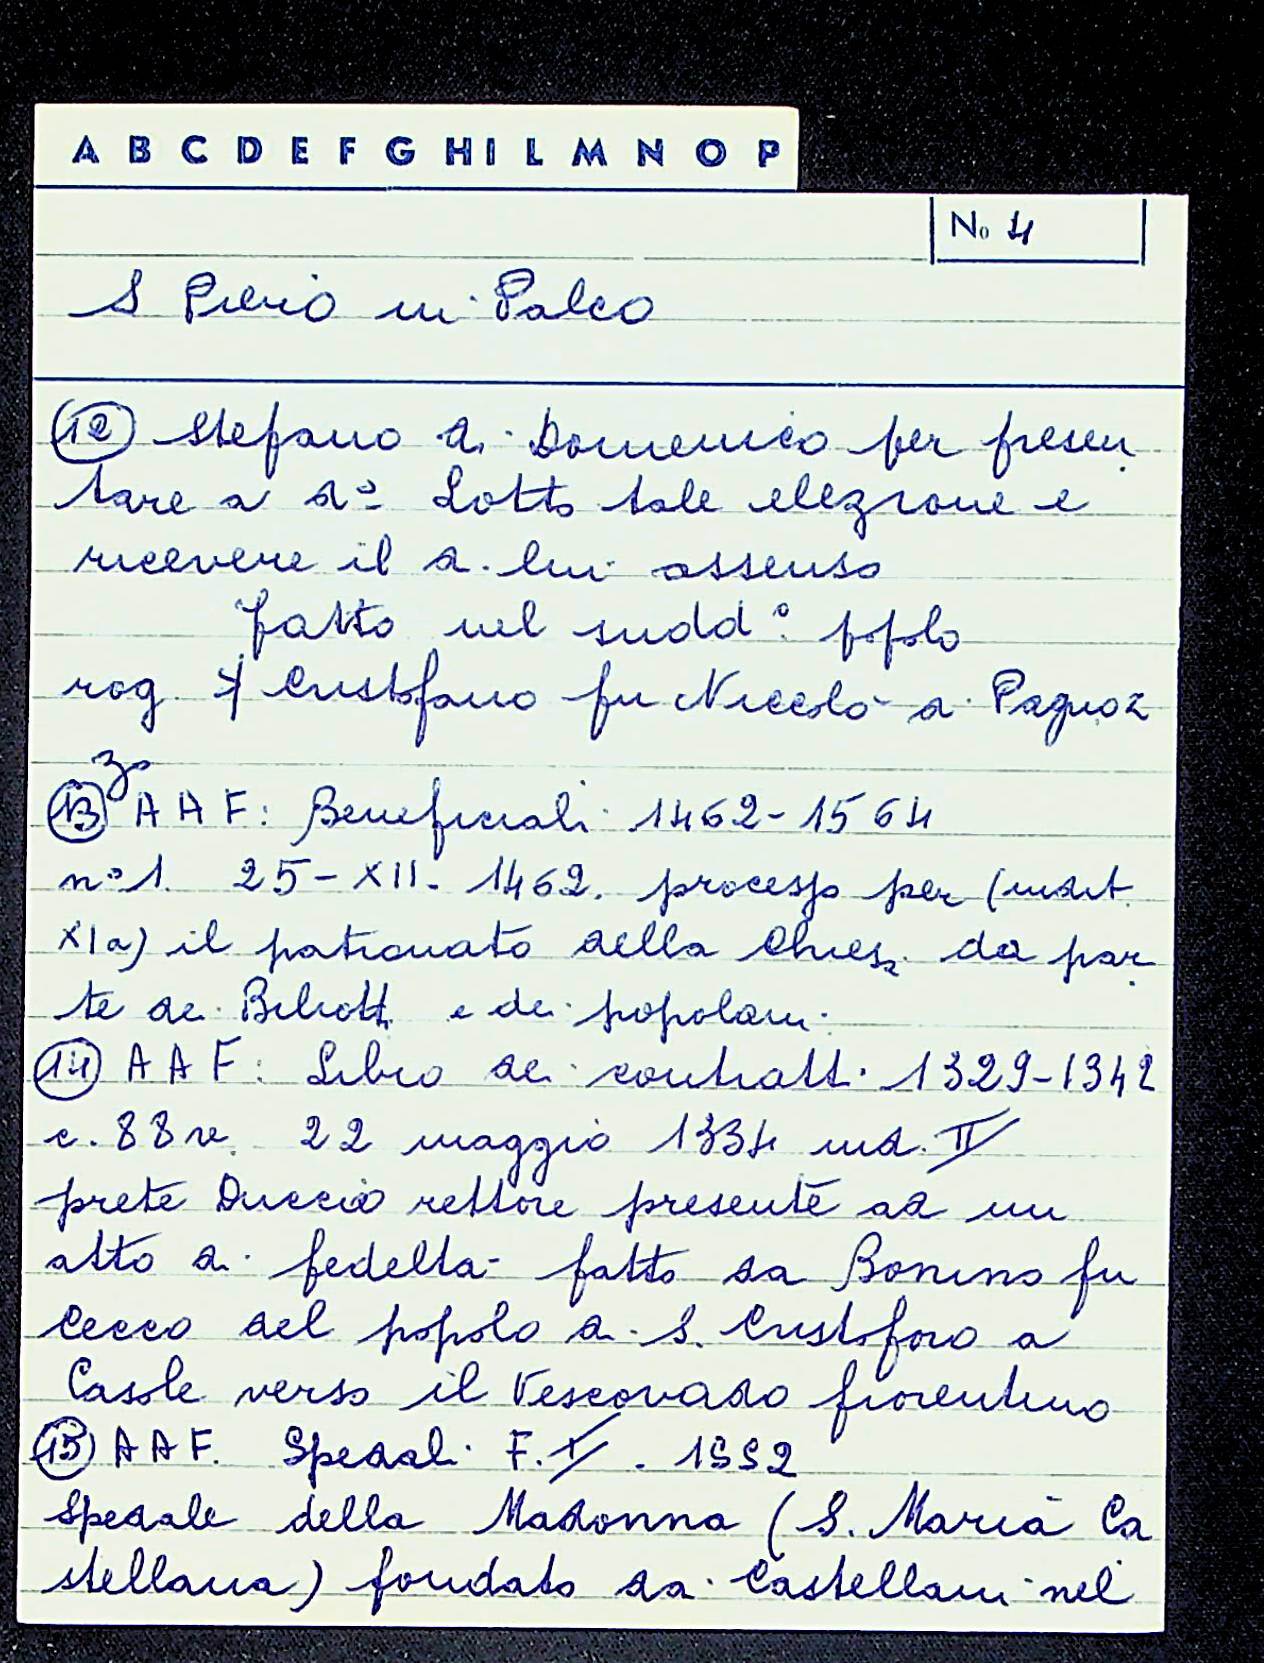 A B C D E F G H I L M N O P
No 4
S Piero in Palco
(12) Stefano di Domenico per presen
tare a do Lotto tale elezione e
ricevere il di lui assenso
fatto nel sudd° popolo
rog. Cristofano fu Niccolò di Pagnoz
zo
(13) A A F: Beneficiali 1462-1564
n° 1. 25-XII-1462. processo per (indit.
XIa) il patronato della Chiesa da par
te dei Biliotti e dei popolani
(14) A A F: Libro dei contratti 1329-1342
c. 88 v. 22 maggio 1334 ind. II
prete Duccio rettore presente ad un
atto di fedeltà fatto da Bonino fu
Cecco del popolo di S. Cristoforo a
Casole verso il Vescovado fiorentino
(15) A A F. Spedali F. I. 1552
Spedale della Madonna (S. Maria Ca
stellana) fondato dai Castellani nel